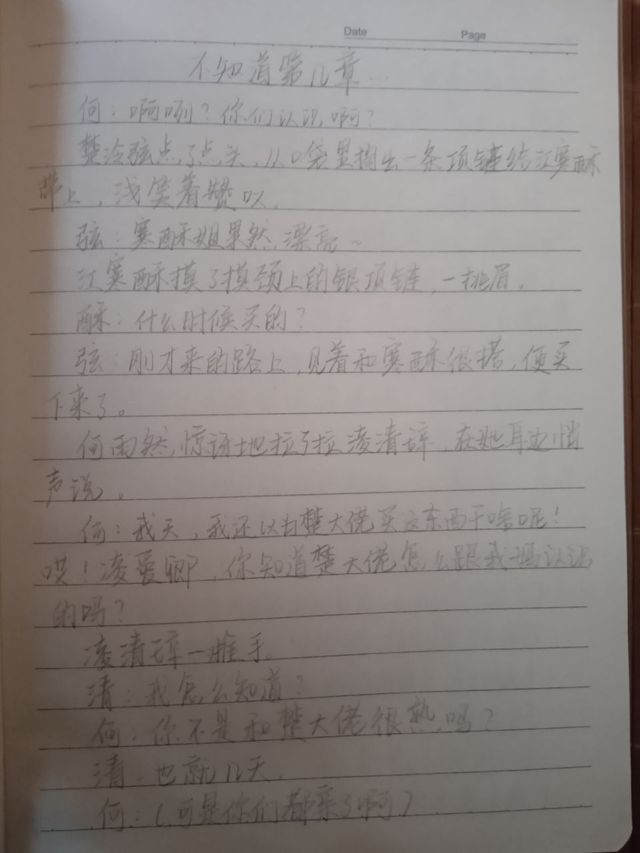 Date Page
不知道第几章…
何：啊咧？你们认识啊？
楚冷弦点了点头，从口袋里掏出一条项链给江寒酥
带上，浅笑着赞叹。
弦：寒酥姐果然漂亮~
江寒酥摸了摸颈上的银项链，一挑眉。
酥：什么时候买的？
弦：刚才来的路上，见着和寒酥很搭，便买
下来了。
何雨然惊讶地拉了拉凌清辞，在她耳边悄
声说。
何：我天，我还以为楚大佬买这东西干啥呢！
哎！凌爱卿，你知道楚大佬怎么跟我妈认识
的吗？
凌清辞一摊手。
清：我怎么知道？
何：你不是和楚大佬很熟吗？
清：也就几天。
何：（可是你们都亲了啊）